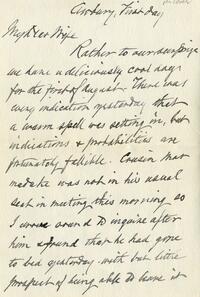 Asbury, First day
My dear Wife
Rather to our surprise
we have a deliciously cool day
for the first of August. There was
every indication yesterday that
a warm spell was setting in, but
indications & probabilities are
fortunately fallible. Cousin Mar
maduke was not in his usual
seat in meeting this morning, so
I went around to inquire after
him & found that he had gone
to bed yesterday with but little
prospect of being able to leave it